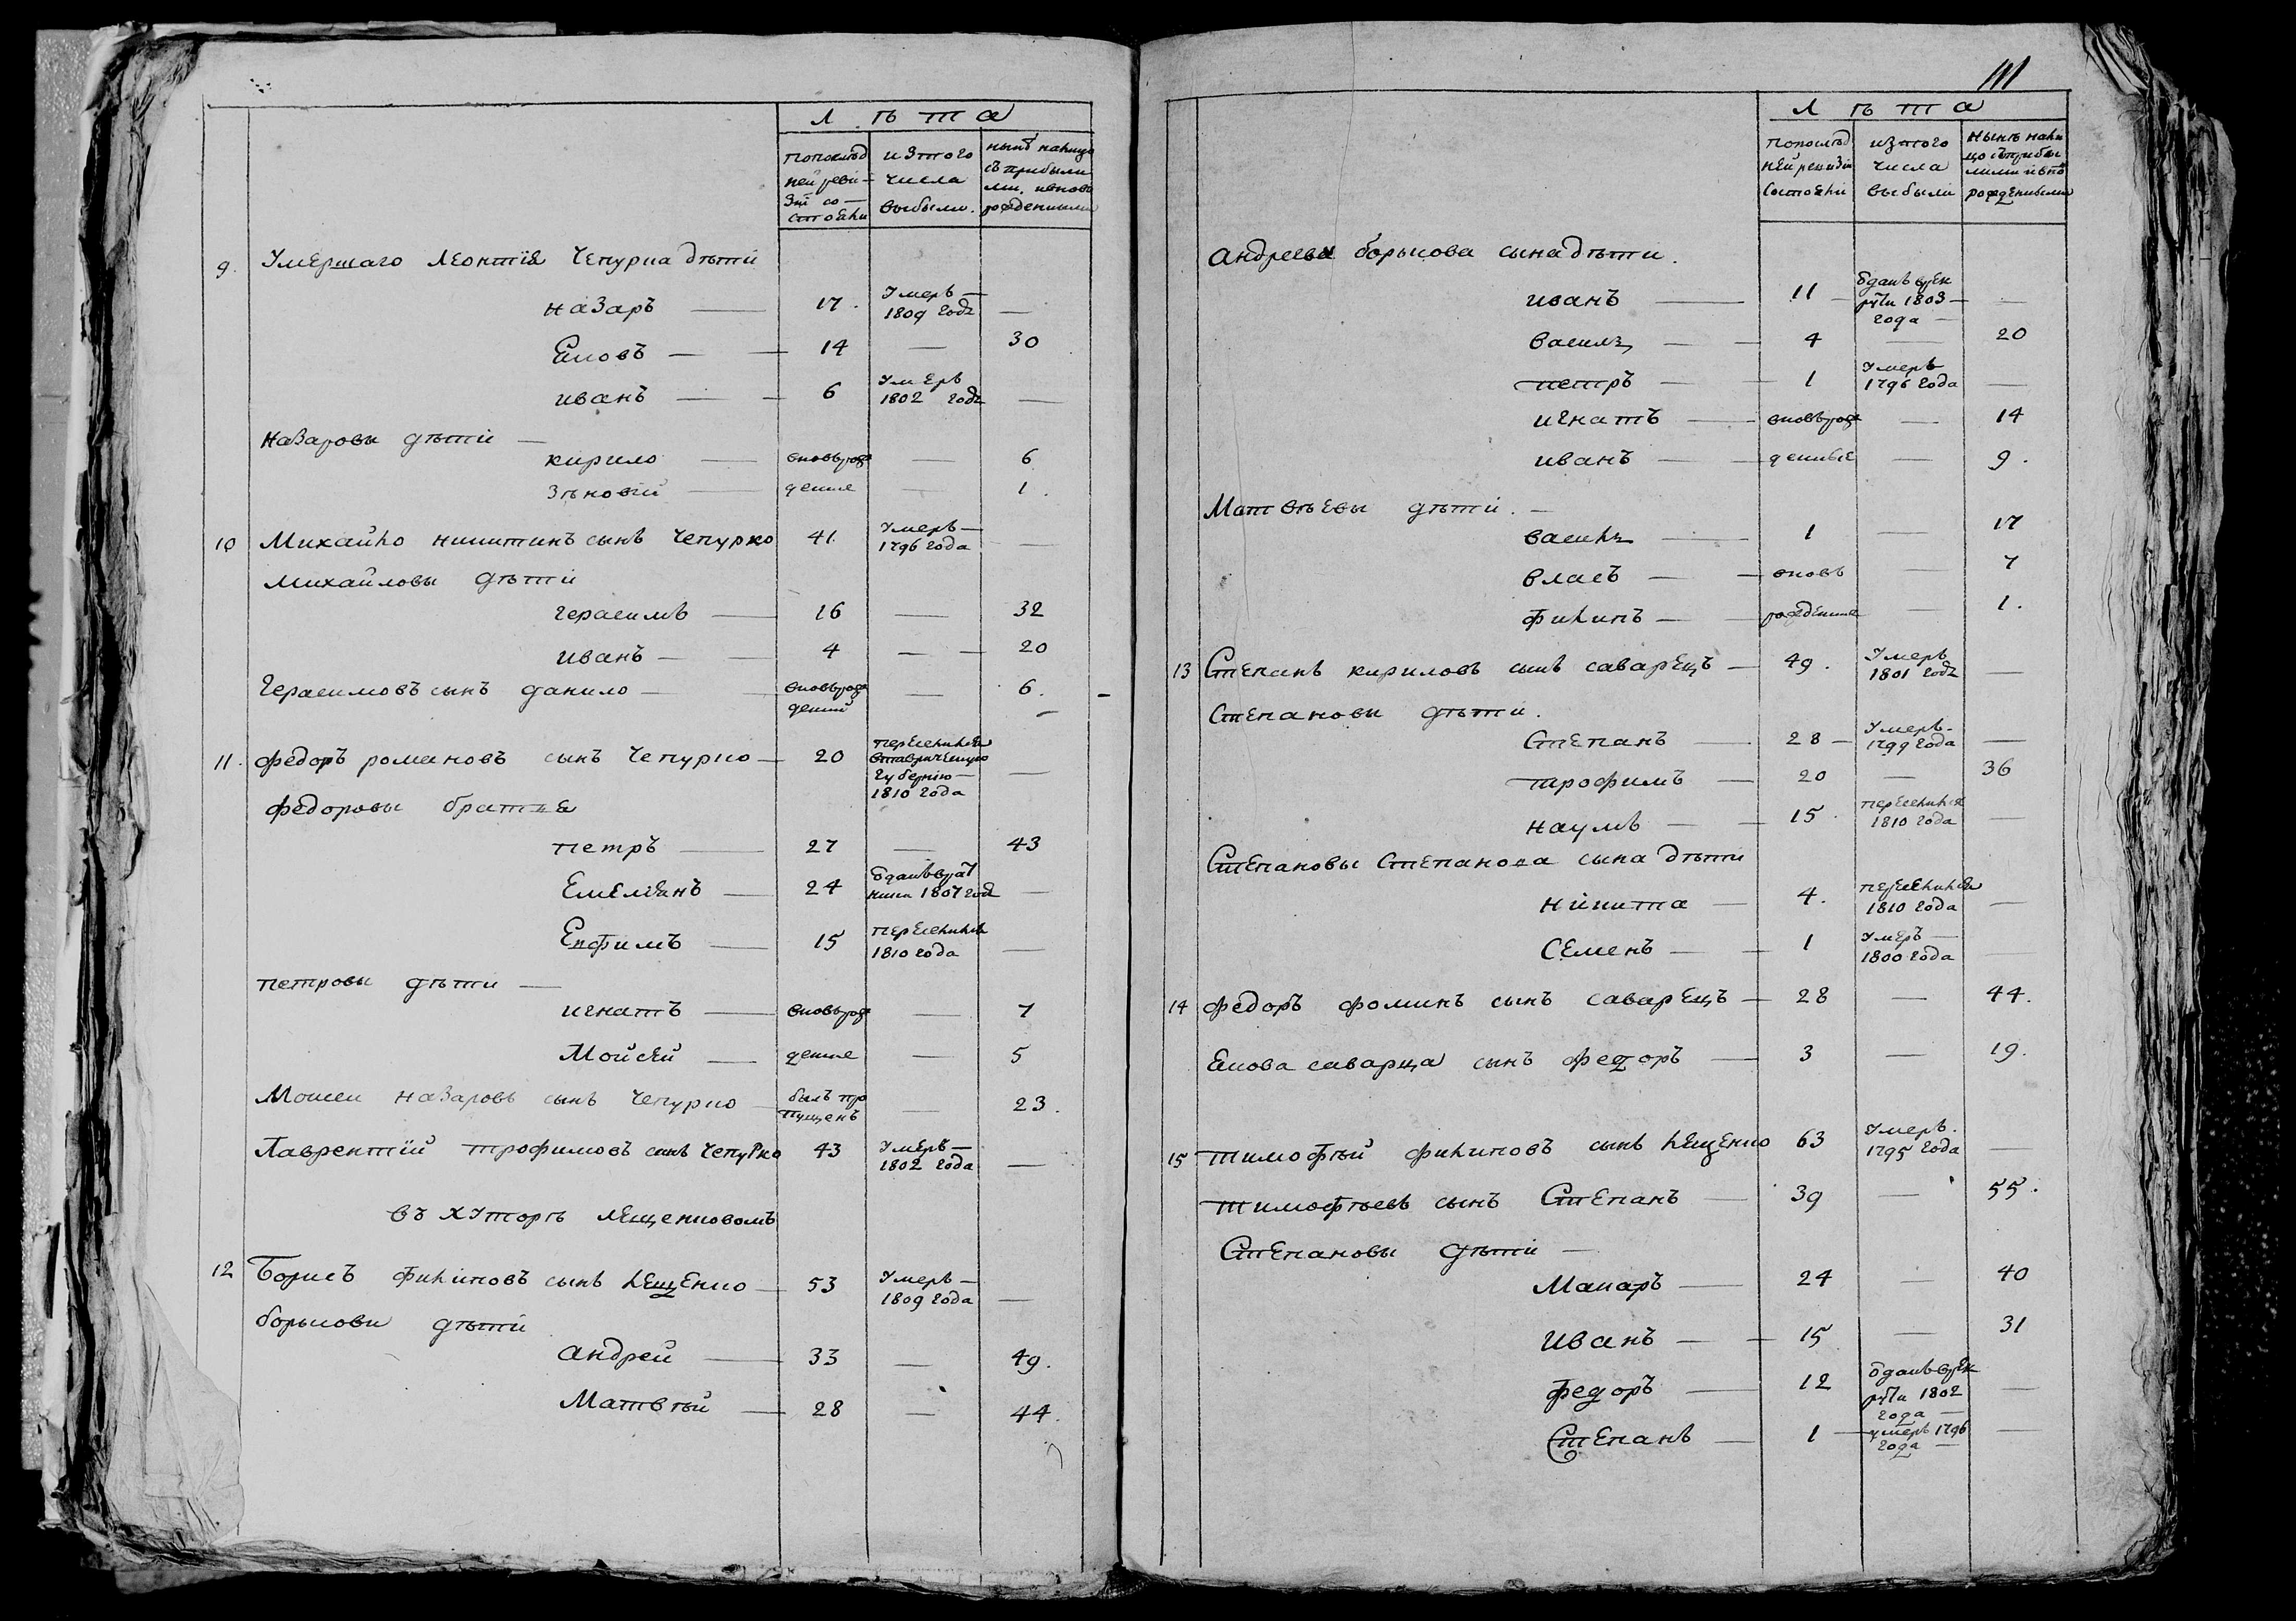 Лѣта
попослѣд
ней реви-
зїи со-
стояли
изтого
числа
выбыли.
нынѣ налицо
съ прибыли
ми, ивновь
рожденными
9. Умершаго Леонтїя Чепурка дѣти
Назаръ — 17. Умеръ —
1809 года —
Яковъ — 14 — 30
иванъ — 6 Умеръ
1802 года —
Назаровы дѣти —
кирило — вновьрож — 6
Зѣновїй — денные — 1.
10 Михайло никитинъ сынъ Чепурко 41. Умеръ —
1796 года —
Михайловы дѣти
Герасимъ — 16 — 32
иванъ — 4 — 20
Герасимовъ сынъ данило — вновьрож — 6.
денный
11. Федоръ романовъ сынъ Чепурко — 20 переселился
втаврическую
губернію —
1810 года —
Федоровы братья
петръ — 27 — 43
Емельянъ — 24 Отданъ врат
ники 1807 года —
Ефимъ — 15 переселился
1810 года —
петровы дѣти —
игнатъ — вновьрож — 7
Мойсей — денные — 5
Моисеи назаровъ сынъ Чепурко — былъ про — 23.
пущенъ
Лаврентїй трофимовъ сынъ Чепурко 43 Умеръ —
1802 года —
въ хуторѣ лещенковомъ
12 Борисъ филиповъ сынъ лещенко — 53 Умеръ —
1809 года —
борисовы дѣти
андрей — 33 — 49.
Матвѣй — 28 — 44.
111
Лѣта
попослѣд
ней ревизїи
состояли
изтого
числа
выбыли
нынѣ нали
цо съприбы
лыми ивно
рожденными
андреевы борисова сына дѣти.
иванъ — 11 — Отданъ врек
руты 1803 —
года —
василь — 4 — 20
петръ — 1 Умеръ
1796 года —
игнатъ — вновьрож — 14
иванъ — денные — 9.
Матвѣевы дѣти. —
василь — 1 — 17
власъ — вновь — 7
филипъ — рожденные — 1.
13 Степанъ кириловъ сынъ саварецъ — 49. Умеръ
1801 года —
Степановы дѣти.
Степанъ — 28 — Умеръ.
1799 года —
трофимъ — 20 — 36
наумъ — 15. переселился
1810 года —
Степановы Степанова сына дѣти
никита — 4. переселился
1810 года —
Семенъ — 1 Умеръ —
1800 года —
14 федоръ фоминъ сынъ саварецъ — 28 — 44.
Якова саварца сынъ федоръ — 3 — 19.
15 тимофѣй филиповъ сынъ лещенко 63 Умеръ.
1795 года —
тимофѣевъ сынъ Степанъ — 39 — 55.
Степановы дѣти —
Макаръ — 24 — 40
Иванъ — 15 — 31
федоръ — 12 Отданъ врек
руты 1802
года — —
Степанъ — 1 — умеръ 1796
года — —